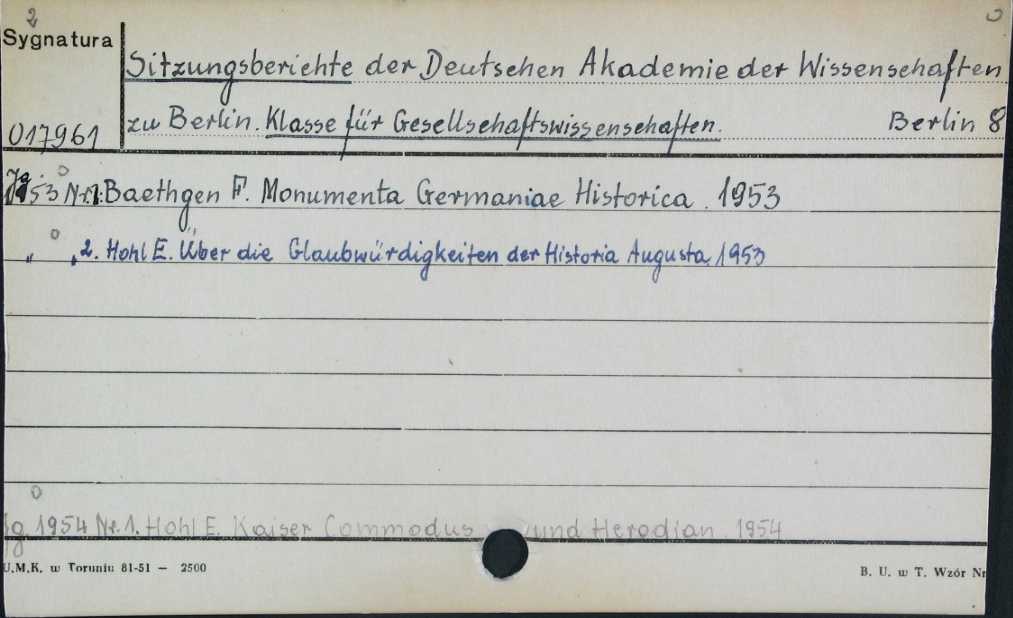 2
Sygnatura
Sitzungsberichte der Deutschen Akademie der Wissenschaften
zu Berlin. Klasse für Gesellschaftswissenschaften. Berlin 8
017961
Jg. 1953 Nr. 1. Baethgen F. Monumenta Germaniae Historica. 1953
" " 2. Hohl E. Über die Glaubwürdigkeiten der Historia Augusta 1953
Jg. 1954 Nr. 1. Hohl E. Kaiser Commodus und Herodian. 1954
U.M.K. w Toruniu 81-51 — 2500 B. U. w T. Wzór Nr